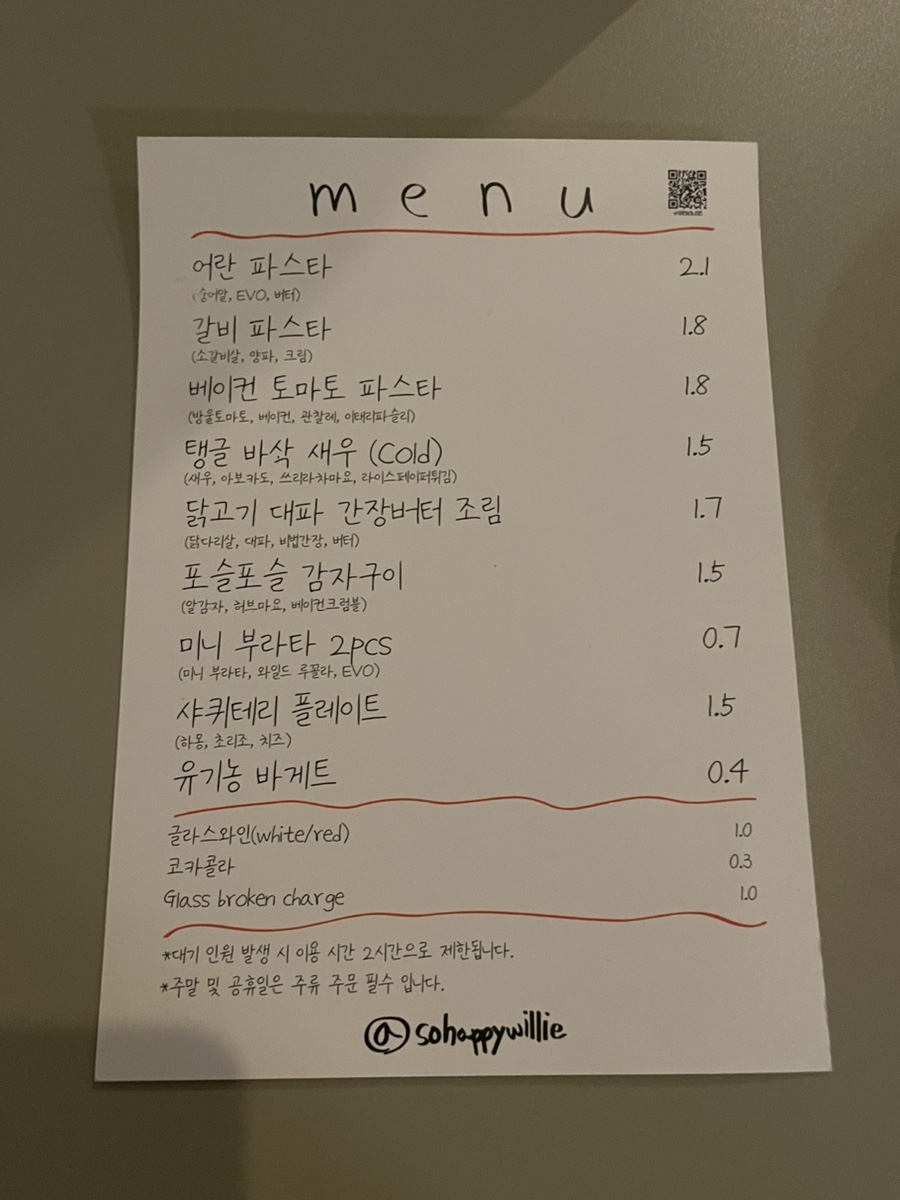 menu
어란 파스타 2.1
(숭어알, EVO, 버터)
갈비 파스타 1.8
(소갈비살, 양파, 크림)
베이컨 토마토 파스타 1.8
(방울토마토, 베이컨, 관찰레, 이태리파슬리)
탱글 바삭 새우 (Cold) 1.5
(새우, 아보카도, 쓰리라차마요, 라이스페이퍼튀김)
닭고기 대파 간장버터 조림 1.7
(닭다리살, 대파, 비법간장, 버터)
포슬포슬 감자구이 1.5
(알감자, 허브마요, 베이컨크럼블)
미니 부라타 2pcs 0.7
(미니 부라타, 와일드 루꼴라, EVO)
샤퀴테리 플레이트 1.5
(하몽, 초리조, 치즈)
유기농 바게트 0.4
글라스와인(white/red) 1.0
코카콜라 0.3
Glass broken charge 1.0
*대기 인원 발생 시 이용 시간 2시간으로 제한됩니다.
*주말 및 공휴일은 주류 주문 필수 입니다.
@sohappywillie